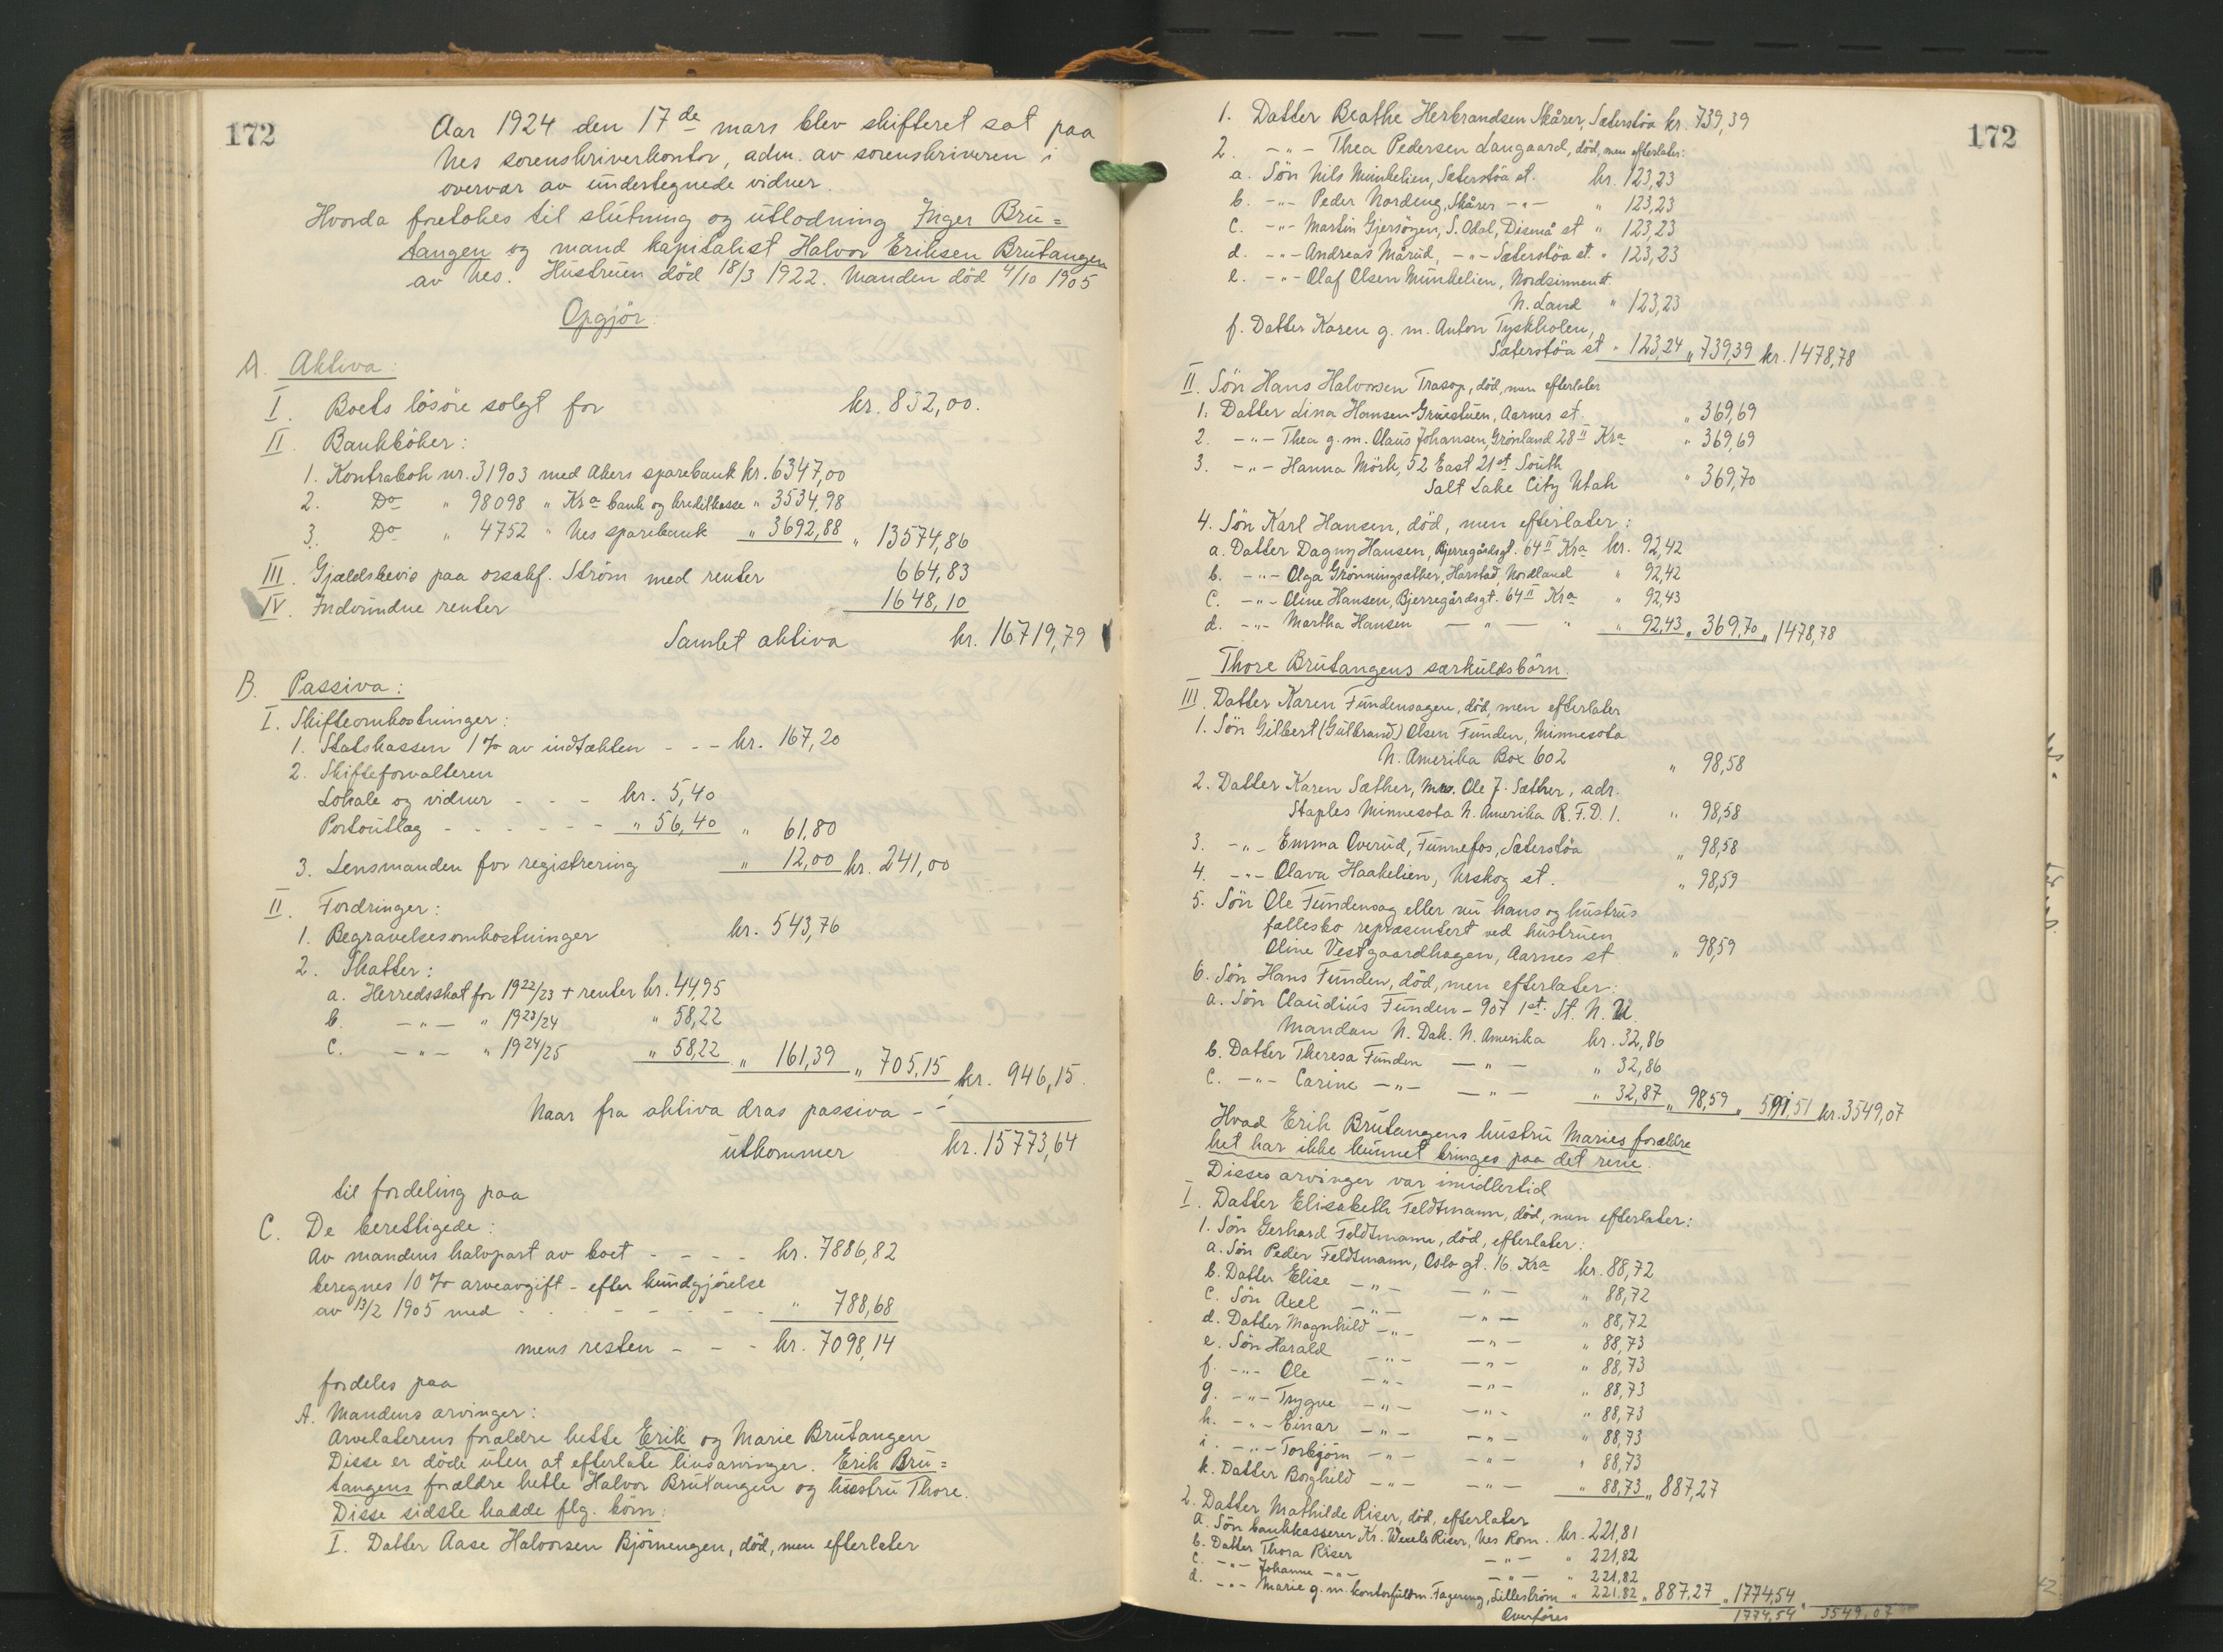 172
Aar 1924 den 17de mars blev skifteret sat paa
Nes sorenskriverkontor, adm. av sorenskriveren i
overvær av undertegnede vidner.
Hvorda foretokes til slutning og utlodning Inger Bru=
tangen og mand kapitalist Halvor Eriksen Brutangen
av Nes. Hustruen död 18/3 1922. Manden död 4/10 1905
Opgjör.
A. Aktiva:
I. Boets lösöre solgt for kr. 832,00.
II. Bankböker:
1. Kontrabok nr. 31903 med Akers sparebank kr. 6347,00
2. Do " 98098 " Kra bank og kreditkasse " 3534,98
3. Do " 4752 " Nes sparebank " 3692,88 " 13574,86
III. Gjældsbevis paa ossakf. Ström med renter 664,83
IV. Indvundne renter 1648,10
Samlet aktiva kr. 16719,79
B. Passiva:
I. Skifteomkostninger:
1. Statskassen 1 % av indtækten - - - kr. 167,20
2. Skifteforvalteren
Lokale og vidner - - - kr. 5,40
Portoutlæg - - - - - - " 56,40 " 61,80
3. Lensmanden for registrering " 12,00 kr. 241,00
II. Fordringer:
1. Begravelsesomkostninger kr. 543,76
2. Skatter:
a. Herredsskat for 1922/23 + renter kr. 44,95
b. -"- " 1923/24 " 58,22
c. -"- " 1924/25 " 58,22 " 161,39 " 705,15 kr. 946,15.
Naar fra aktiva dras passiva - -
utkommer kr. 15773,64
til fordeling paa
C. De berettigede:
Av mandens halvpart av boet - - - - kr. 7886,82
beregnes 10 % arveavgift - efter kundgjörelse
av 13/2 1905 med - - - - - - - " 788,68
mens resten - - - kr. 7098,14
fordeles paa
A. Mandens arvinger:
Arvelaterens forældre hette Erik og Marie Brutangen
Disse er döde uten at efterlate livsarvinger. Erik Bru=
tangens forældre hette Halvor Brutangen og hustru Thore.
Disse sidste hadde flg. börn:
I. Datter Aase Halvorsen Björnengen, död, men efterlater
172
1. Datter Beathe Herbrandsen Skårer, Sæterstöa kr. 739,39
2. -"- Thea Pedersen Langaard, död, men efterlater:
a. Sön Nils Munkelien, Sæterstöa st. kr. 123,23
b. -"- Peder Nordeng, Skårer -"- " 123,23
c. -"- Martin Gjersöyen, S. Odal, Disenå st " 123,23
d. -"- Andreas Mårud, -"- Sæterstöa st. " 123,23
e. -"- Olaf Olsen Munkelien, Nordsinnen st.
N. Land " 123,23
f. Datter Karen g. m. Anton Tyskholen,
Sæterstöa st " 123,24 " 739,39 kr. 1478,78
II. Sön Hans Halvorsen Trasop, död, men efterlater
1. Datter Lina Hansen Gruestuen, Aarnes st. " 369,69
2. -"- Thea g. m. Olaus Johansen, Grönland 28 II Kra " 369,69
3. -"- Hanna Mörk, 52 East 21st South
Salt Lake City Utah " 369,70
4. Sön Karl Hansen, död, men efterlater:
a. Datter Dagny Hansen, Bjerregårdsgt. 64 II Kra kr. 92,42
b. -"- Olga Grönningsæther, Harstad, Nordland " 92,42
c. -"- Oline Hansen, Bjerregårdsgt. 64 II Kra " 92,43
d. -"- Martha Hansen - " - " " 92,43 " 369,70 " 1478,78
Thore Brutangens særkuldsbörn.
III. Datter Karen Fundensagen, död, men efterlater
1. Sön Gilbert (Gulbrand) Olsen Funden, Minnesota
N. Amerika Box 602 " 98,58
2. Datter Karen Sæther, Mrs. Ole J. Sæther, adr.
Staples Minnesota N. Amerika R.F.D. 1. " 98,58
3. -"- Emma Overud, Funnefos, Sæterstöa " 98,58
4. -"- Olava Haakelien, Urskog st. " 98,59
5. Sön Ole Fundensag eller nu hans og hustrus
fællesbo repræsentert ved hustruen
Oline Vestgaardhagen, Aarnes st " 98,59
6. Sön Hans Funden, död, men efterlater:
a. Sön Claudius Funden - 907 1st. St. N. U.
Mandan N. Dak. N. Amerika kr. 32,86
b. Datter Theresa Funden - " - " 32,86
c. -"- Carine -"- - " - " 32,87 " 98,59 " 591,51 kr. 3549,07
Hvad Erik Brutangens hustru Maries forældre
het har ikke kunnet bringes paa det rene.
Disses arvinger var imidlertid
I. Datter Elisabeth Feldtmann, död, men efterlater:
1. Sön Gerhard Feldtmann, död, efterlater:
a. Sön Peder Feldtmann, Oslo gt. 16. Kra kr. 88,72
b. Datter Elise -"- -"- " 88,72
c. Sön Axel -"- -"- " 88,72
d. Datter Magnhild -"- -"- " 88,73
e. Sön Harald -"- -"- " 88,73
f. -"- Ole -"- -"- " 88,73
g. -"- Trygve -"- -"- " 88,73
h. -"- Einar -"- -"- " 88,73
i. -"- Torbjörn -"- -"- " 88,73
k. Datter Borghild -"- -"- " 88,73 " 887,27
2. Datter Mathilde Riser, död, efterlater
a. Sön bankkasserer Kr. Wesels Riser, Nes Rom. kr. 221,81
b. Datter Thora Riser -"- " 221,82
c. -"- Johanne -"- -"- " 221,82
d. -"- Marie g. m. kontorfuldm. Fagereng, Lilleström " 221,82 " 887,27 " 1774,54
Overföres 1774,54 3549,07